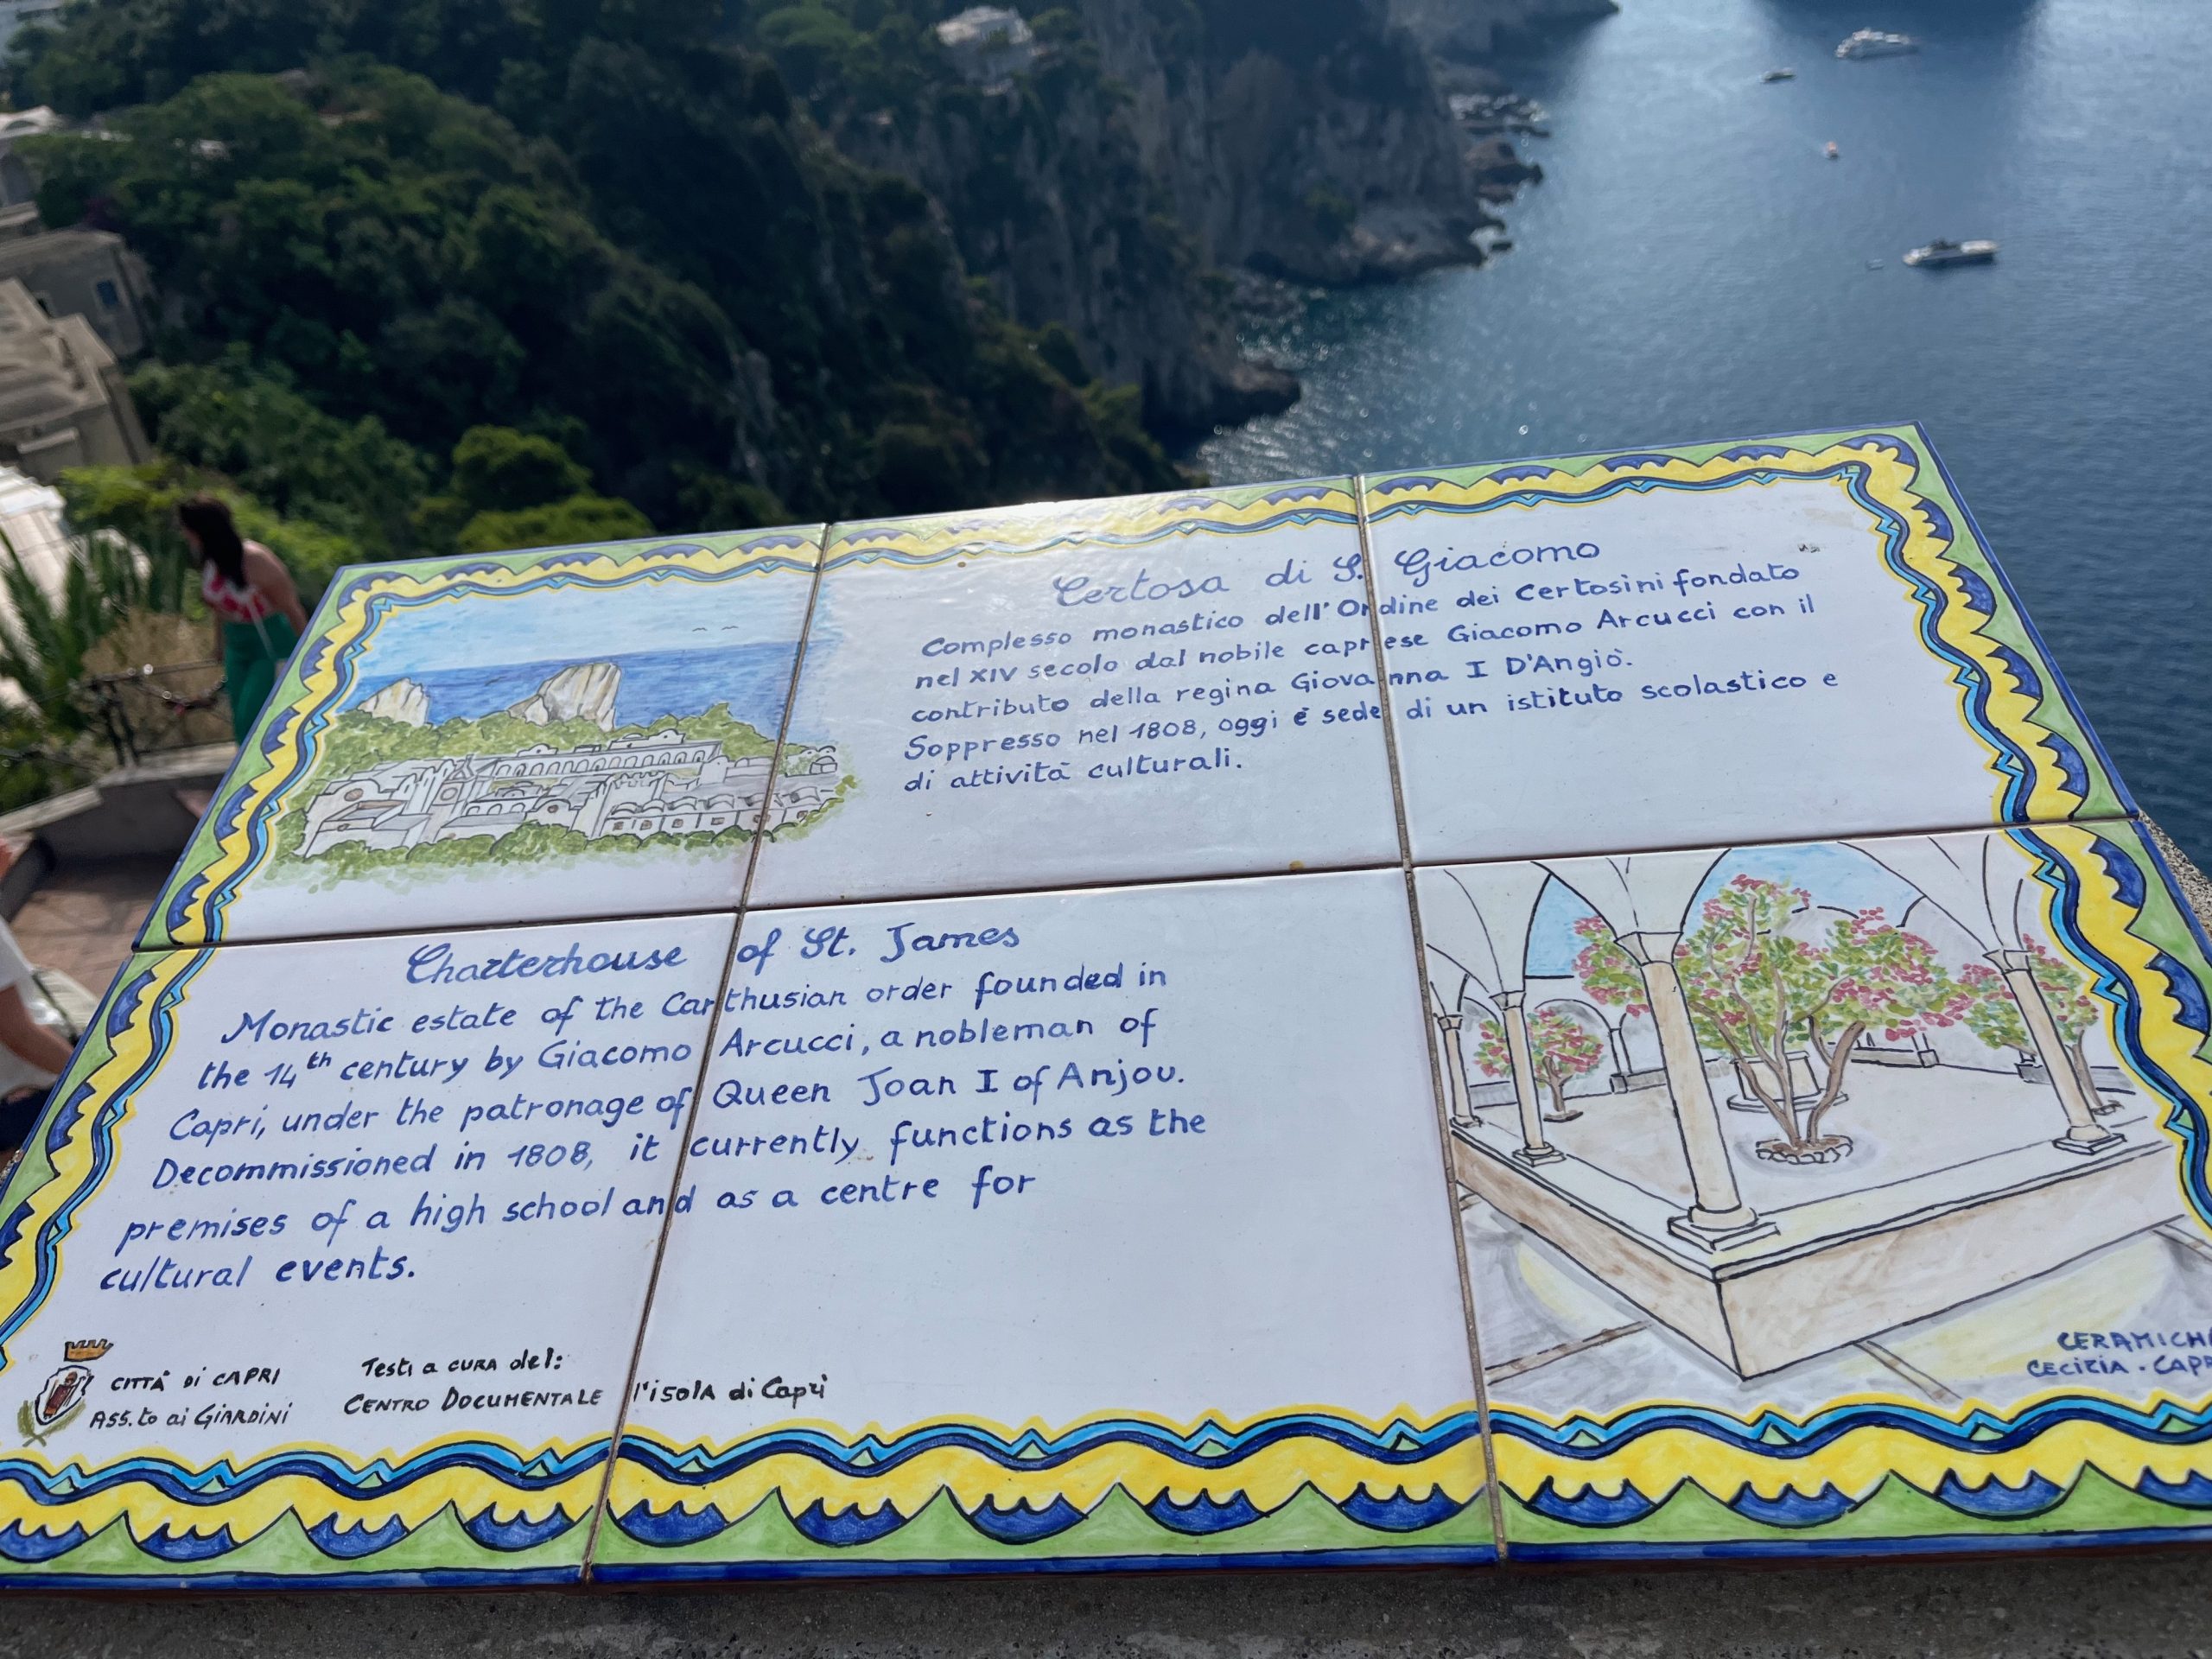 Certosa di S. Giacomo
Complesso monastico dell'Ordine dei Certosini fondato
nel XIV secolo dal nobile caprese Giacomo Arcucci con il
contributo della regina Giovanna I D'Angiò.
Soppresso nel 1808, oggi è sede di un istituto scolastico e
di attività culturali.
Charterhouse of St. James
Monastic estate of the Carthusian order founded in
the 14th century by Giacomo Arcucci, a nobleman of
Capri, under the patronage of Queen Joan I of Anjou.
Decommissioned in 1808, it currently functions as the
premises of a high school and as a centre for
cultural events.
CITTÀ Di CAPRI
ASS.to ai GiARDINI
Testi a CURA del:
CENTRO DOCUMENTALE l'isola di Capri